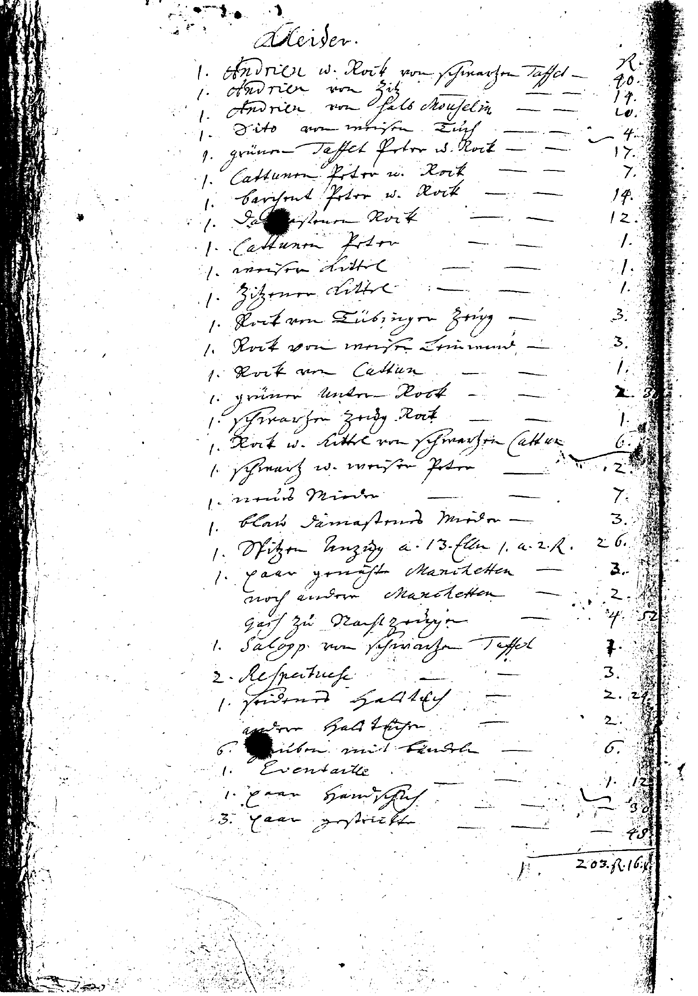 Kleider.
fl.
1. Andrien u. Rock von schwarzen Taffet — 40.
1. Andrien von Zitz — — 14.
1. Andrien von halb Mouselin — 20.
1. Dito von weisen Tuch — — 4.
1. grünen Taffet Peter u. Rock — — 17.
1. Cattunen Peter u. Rock — — 7.
1. barchent Peter u. Rock — — 14.
1. Rock — — 12.
1. Cattunen Peter — — 1.
1. weisen Kittel — — 1.
1. Zitzener Kittel — — 1.
1. Rock von Tübinger Zeug — 3.
1. Rock von weiser Leinwand — 3.
1. Rock von Cattun — 1.
1. grüner Unter Rock — — 2.
1. schwarzer Zeug Rock — — 1.
1. Rock u. Kittel von schwarzen Cattun 6.
1. schwarz u. weiser Peter — 2.
1. neues Mieder — — 7.
1. blau damastenes Mieder — 3.
1. Spitzen Anzug a. 13. Elln 1. a. 2. fl. 26.
1. paar genähte Manchetten — 3.
noch andere Manchetten — 2.
zu Nachtzeuge — 4 52
1. Salopp von schwarzen Taffet 7.
2. — — 3.
1. seidenes Halstuch — — 2. 24
andere Halstücher — 2.
6. mit bändeln — 6.
1. Eventaille — — 1. 12
1. paar Handschuh — — 30
3. paar gestrickte — — — 48.
203. fl. 16.